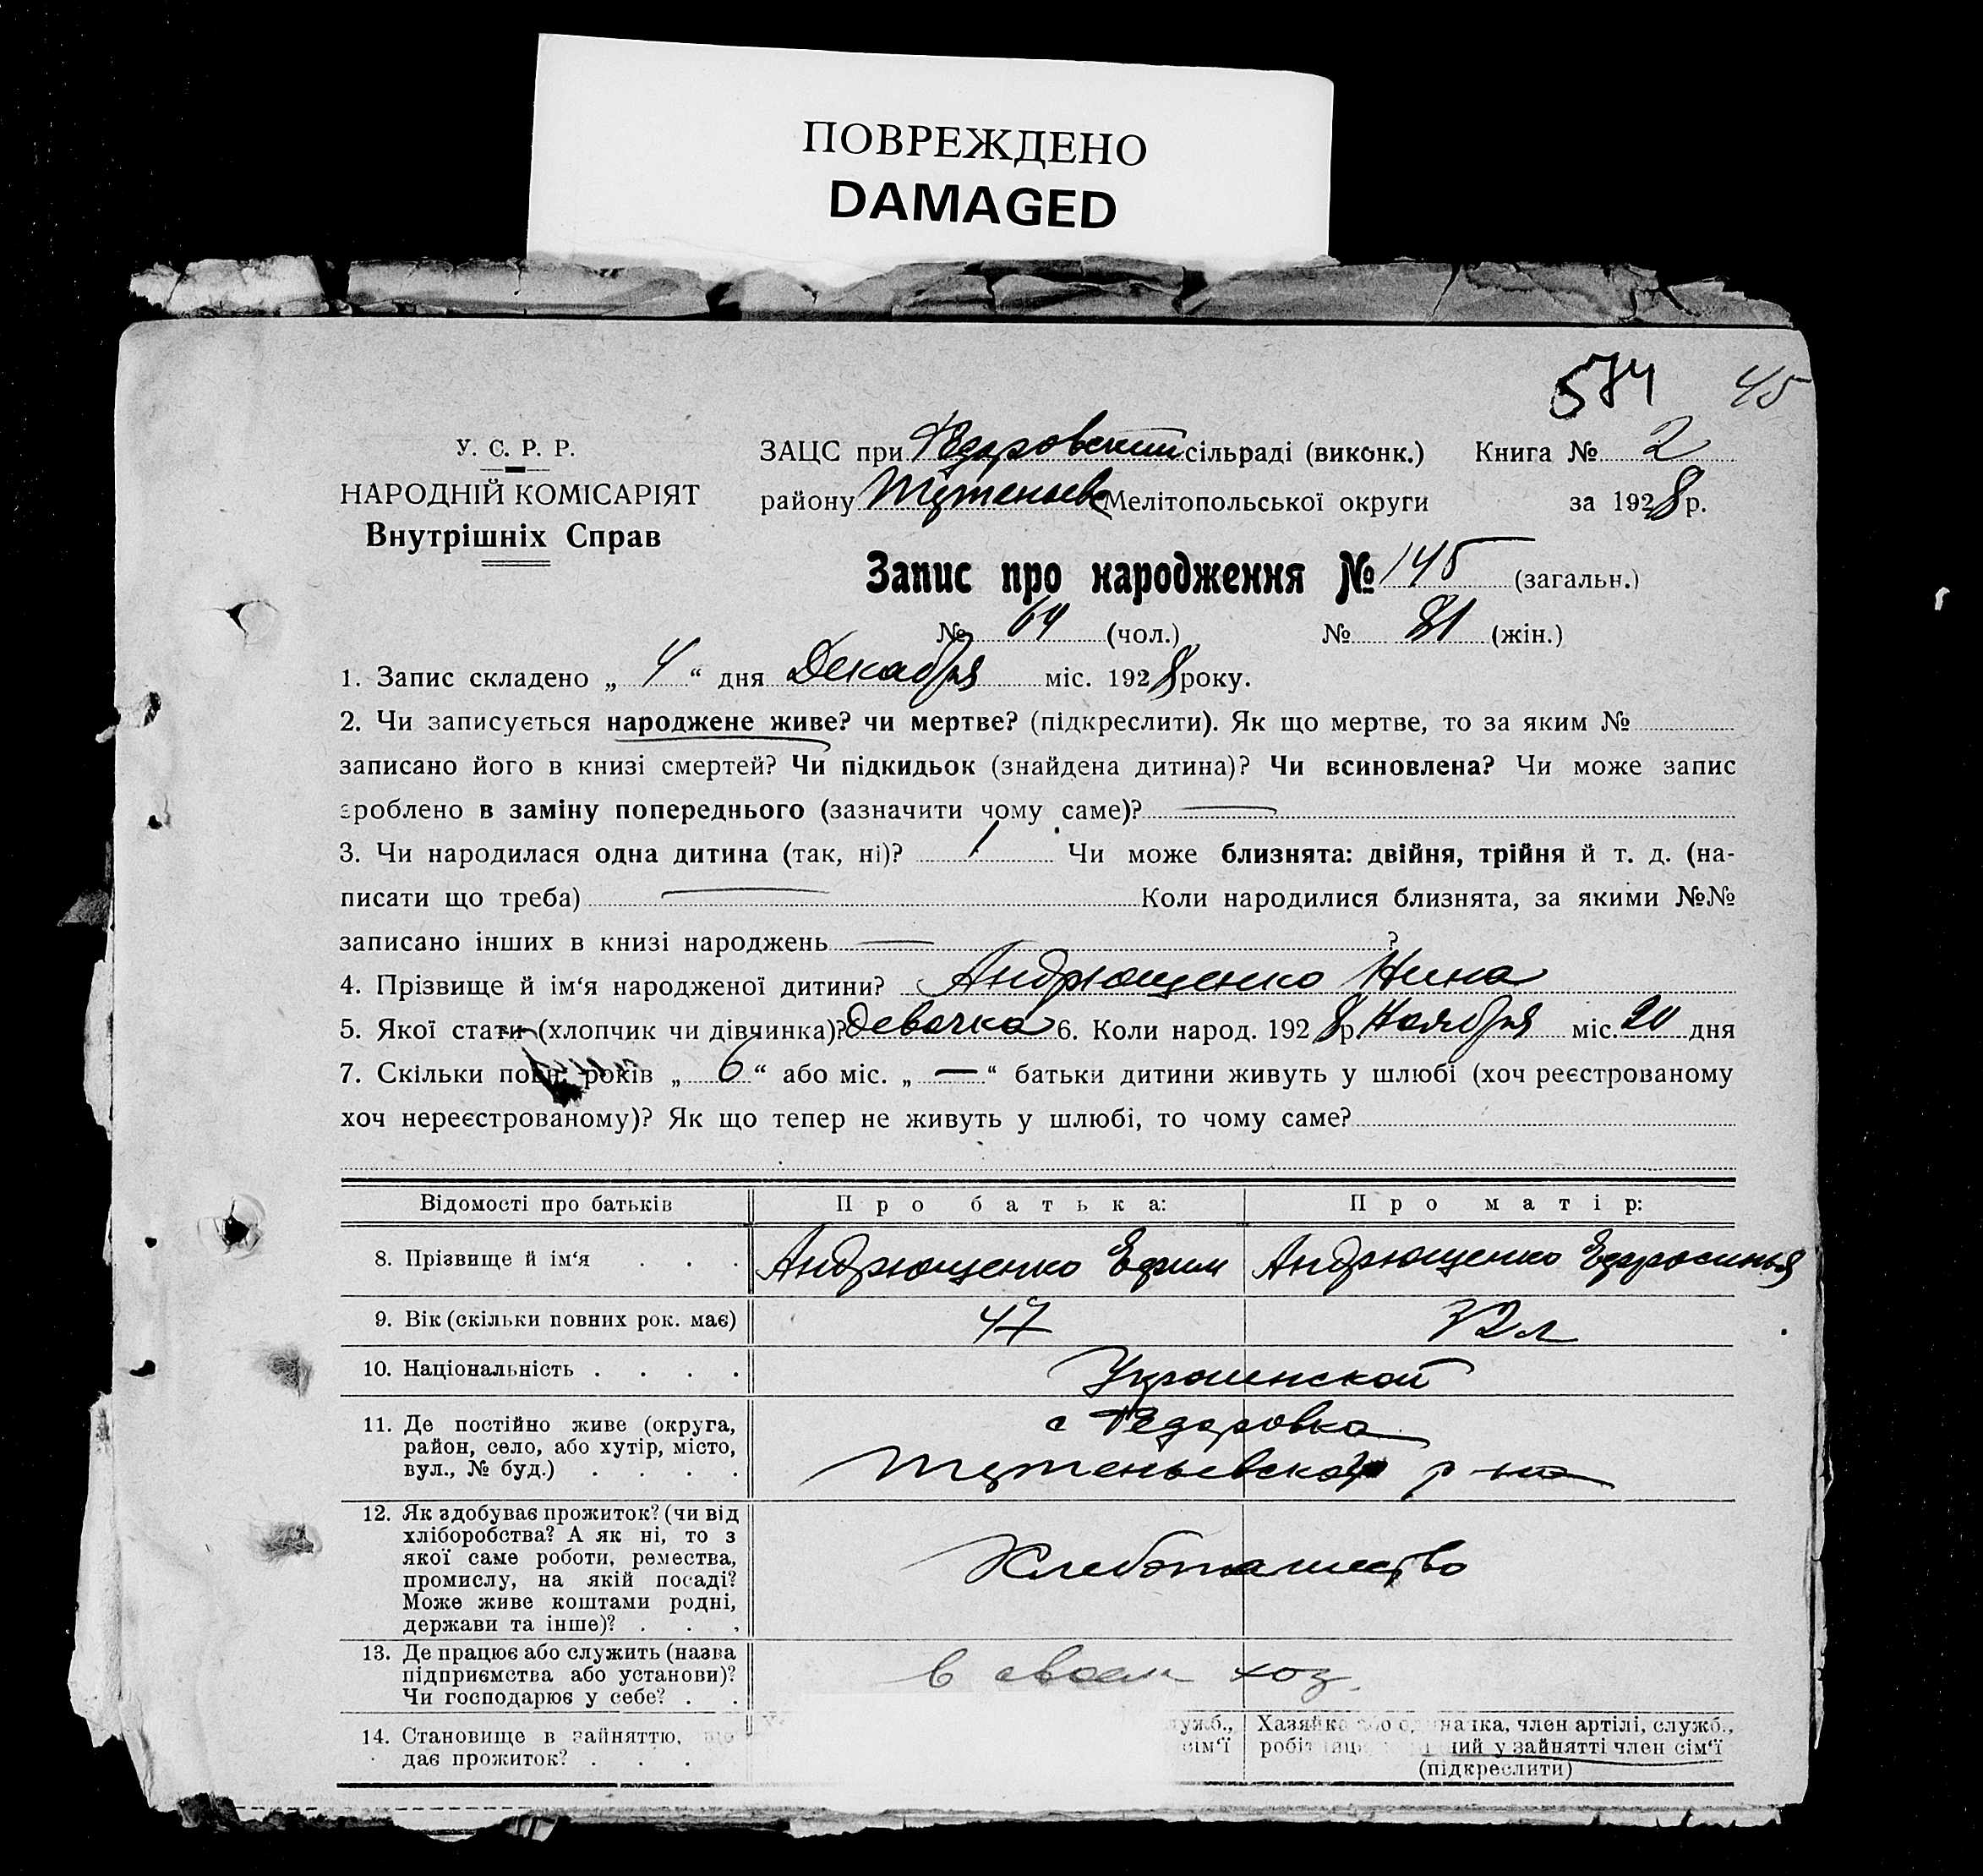 ПОВРЕЖДЕНО
DAMAGED
574 45
У. С. Р. Р.
НАРОДНІЙ КОМІСАРІЯТ
Внутрішніх Справ
ЗАЦС при Федоровский сільраді (виконк.) Книга № 2
району Мелітопольської округи за 1928 р.
Запис про народження № 145 (загальн.)
№ 64 (чол.) № 81 (жін.)
1. Запис складено „ 4 “ дня Декабря міс. 1928 року.
2. Чи записується народжене живе? чи мертве? (підкреслити). Як що мертве, то за яким №
записано його в книзі смертей? Чи підкидьок (знайдена дитина)? Чи всиновлена? Чи може запис
зроблено в заміну попереднього (зазначити чому саме)? —
3. Чи народилася одна дитина (так, ні)? 1 Чи може близнята: двійня, трійня й т. д. (на-
писати що треба) — Коли народилися близнята, за якими №№
записано інших в книзі народжень — ?
4. Прізвище й ім‘я народженої дитини? Андрющенко Нина
5. Якої стати (хлопчик чи дівчинка)? Девочка 6. Коли народ. 1928 р. Ноября міс. 20 дня
7. Скільки повн. років „ 6 “ або міс. „ — “ батьки дитини живуть у шлюбі (хоч реєстрованому
хоч нереєстрованому)? Як що тепер не живуть у шлюбі, то чому саме?
Відомості про батьків Про батька: Про матір:
8. Прізвище й ім‘я . . . Андрющенко Ефим Андрющенко Ефросинья
9. Вік (скільки повних рок. має) 47 32 л
10. Національність . . . . Украинской
11. Де постійно живе (округа,
район, село, або хутір, місто,
вул., № буд.) . . . .
с Федоровка
р-на
12. Як здобуває прожиток? (чи від
хліборобства? А як ні, то з
якої саме роботи, ремества,
промислу, на якій посаді?
Може живе коштами родні,
держави та інше)? . . .
Хлебопашество
13. Де працює або служить (назва
підприємства або установи)?
Чи господарює у себе? . .
в своем хоз.
14. Становище в зайняттю, що
дає прожиток? . . .
служб.,
сім‘ї
Хазяйка або одиначка, член артілі, служб.,
у зайнятті член сім‘ї
(підкреслити)